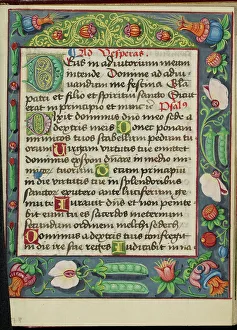 Ad Vesperas.
Deus in adiutorium meum
intende Domine ad adiu
uandum me festina Gla
patri et filio et spiritui sancto Sicut
erat in principio et nunc Psal9
Dixit dominus domino meo sede
a dextris meis Donec ponam
inimicos tuos scabellum pedum tu
orum Uirgam virtutis tue emittet
dominus ex syon dnare in medio ini
micorum tuorum Tecum principiu
in die virtutis tue in splendoribus
sanctorum ex utero ante luciferum genui
te Iurauit dns et non penitebit
eum tu es sacerdos in eternum
secundum ordinem melchisedech
Dominus a dextris tuis confregit
in die ire sue reges Iudicabit in na